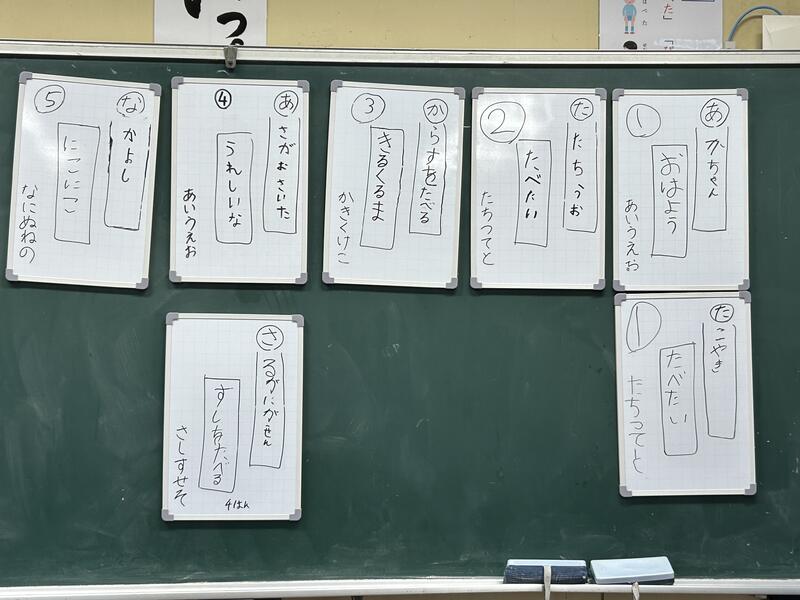 ①
あかちゃん
おはよう
あいうえお
②
たたちうお
たべたい
たちつてと
③
からすをたべる
きるくるま
かきくけこ
④
あさがおさいた
うれしいな
あいうえお
⑤
なかよし
にこにこ
なにぬねの
①
たこやき
たべたい
たちつてと
さるがにがせん
すしをたべる
さしすせそ
4はん